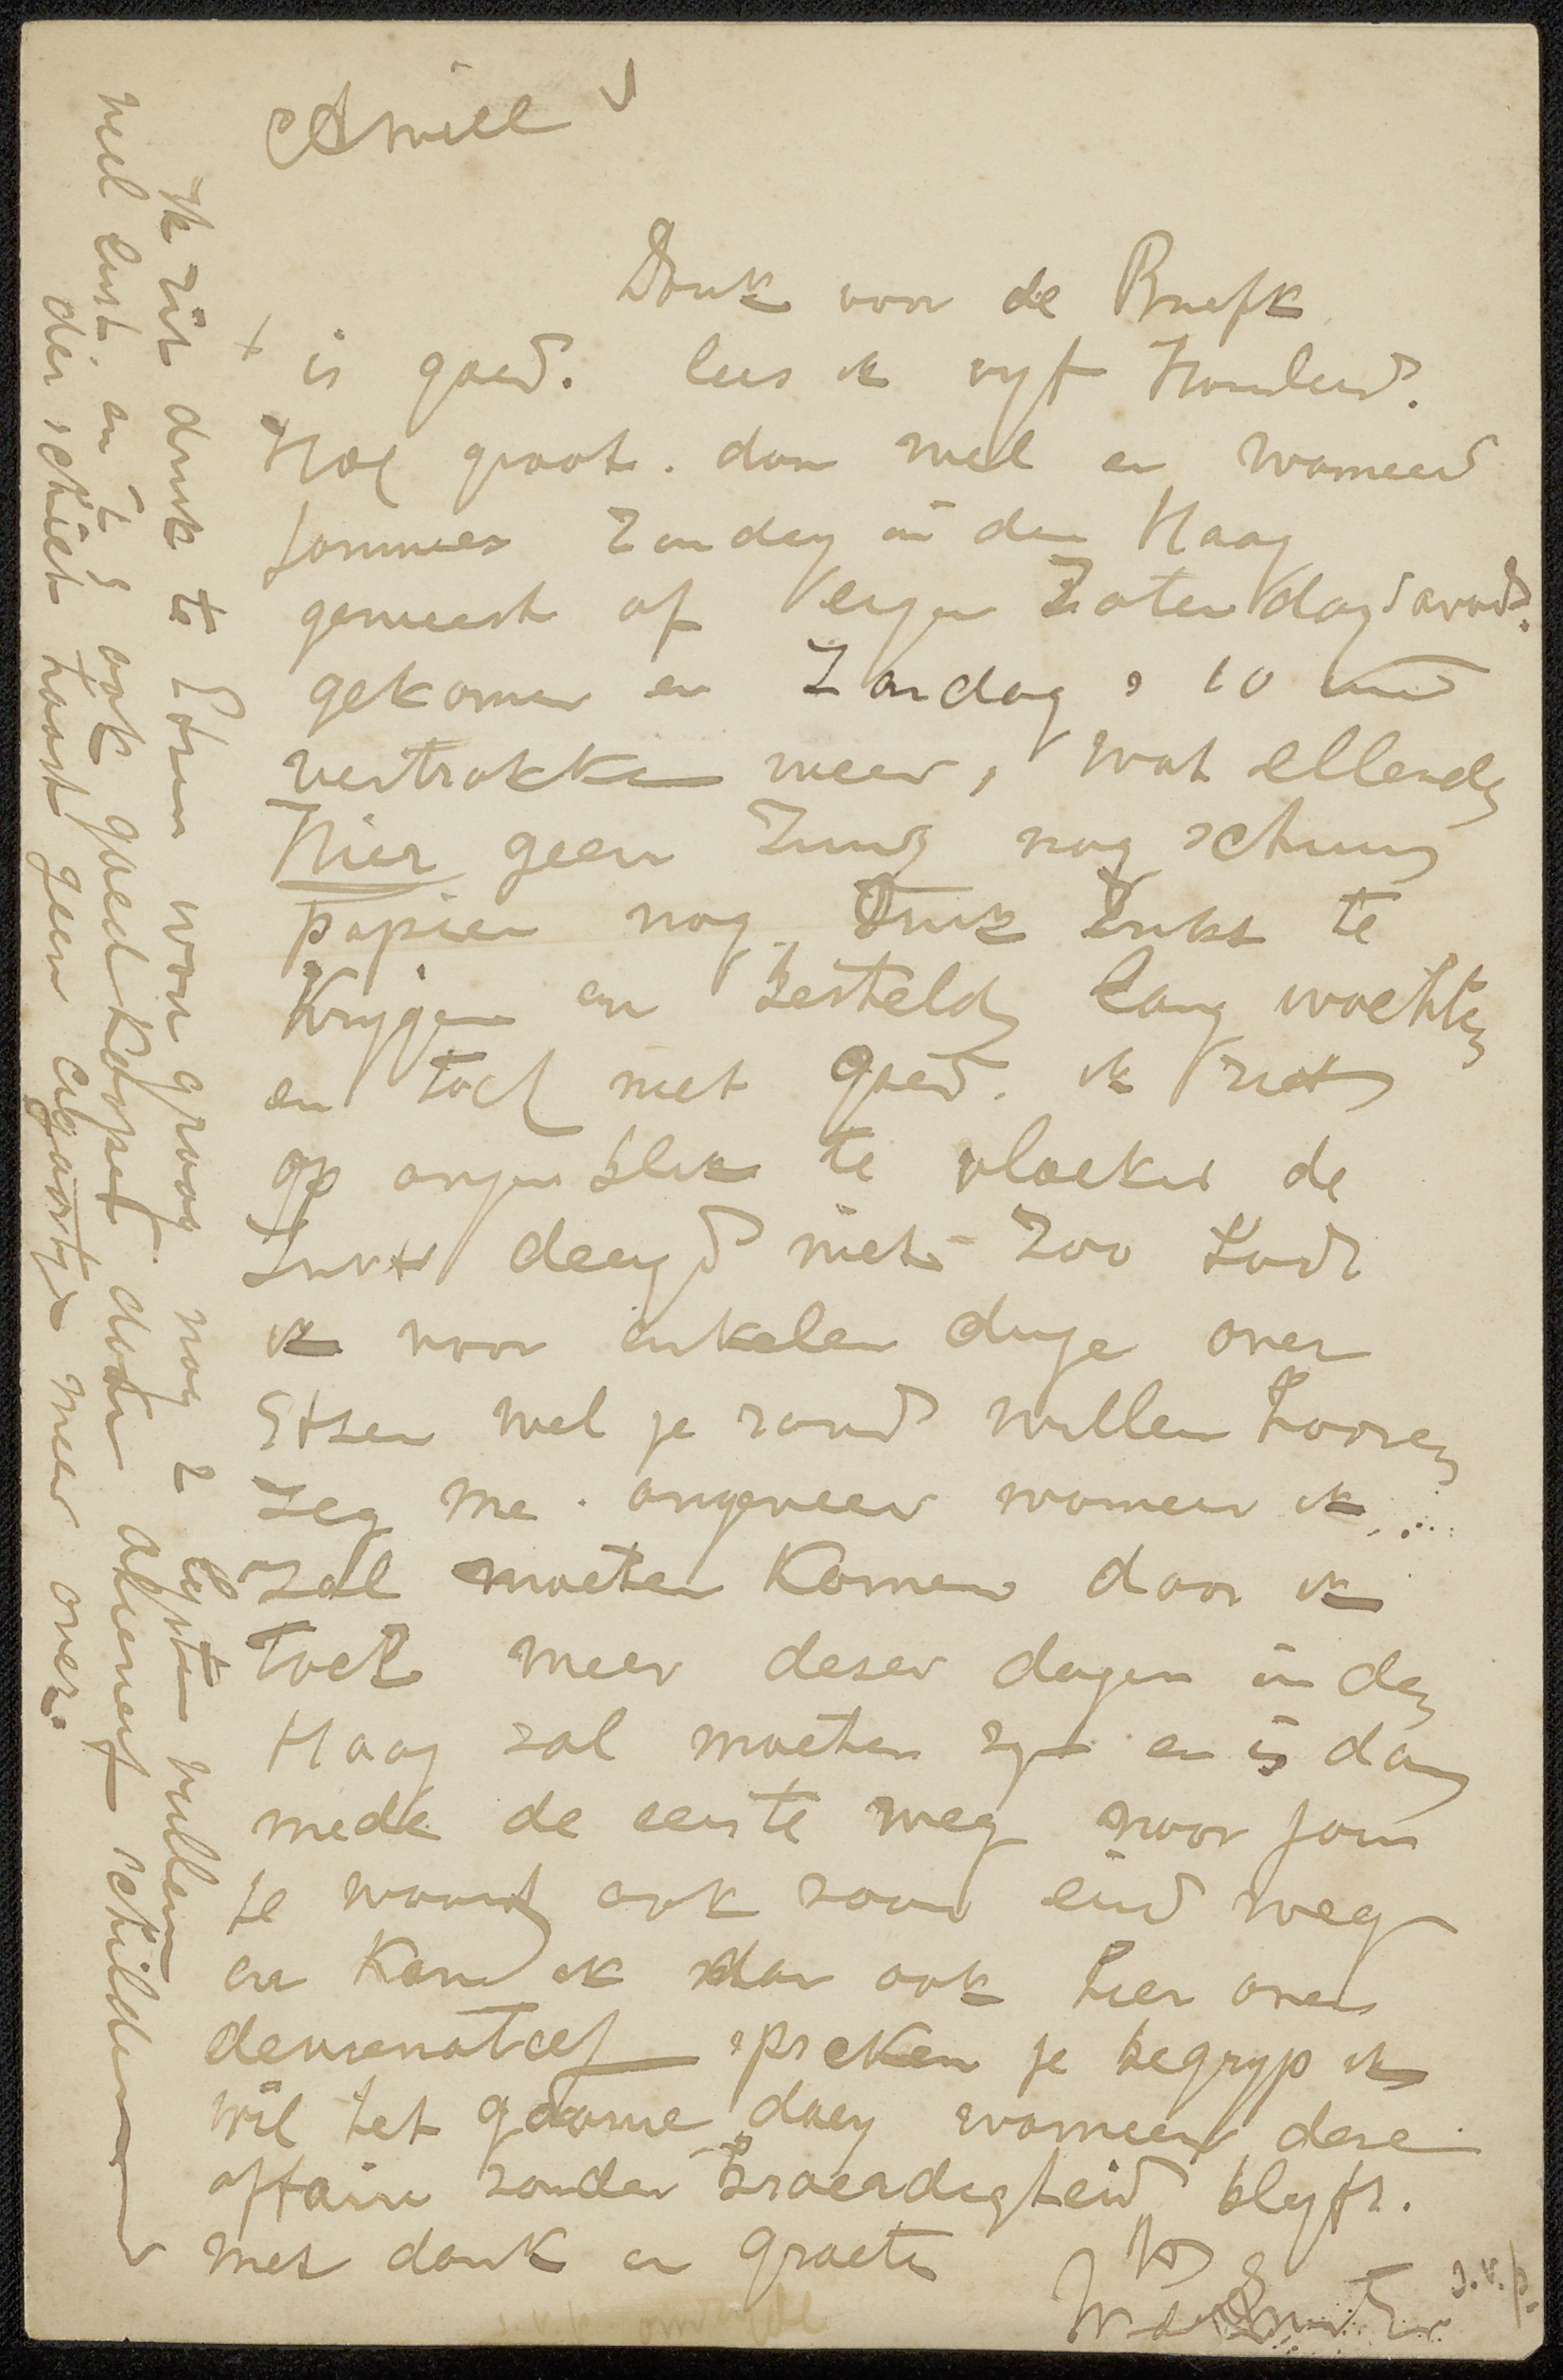 Amice
Dank voor de Briefk
is goed. lees ik vyf Honderd.
Hoe groot. dan wel en wanneer
jammer Zondag in den Haag
geweest of liever Zaterdag avond.
gekomen en Zondag 10
vertrokken weer, wat ellende
Hier geen Zuur nog schuur
papier nog Druk Inkt te
Krygen en besteld lang wachten
en toch niet goed. ik zit
op oogenblik te vloeken de
Inkt deugd niet zoo had
ik voor enkelen dinge over
Etsen wel je raad willen hooren
zeg me. ongeveer wanneer ik
zal moeten Komen daar ik
toch weer dezer dagen in den
Haag zal moeten zyn en is dan
mede de eerste weg naar jou
je woont ook zoo'n eind weg
en Kan ik dan ook hier over
spreken je begryp ik
wil het gaarne doen wanneer deze
affaire zonder kwaardigheid blyft.
met dank en groete
W de Zwart
s.v.p.
Ik zit druk te Etsen voor graag nog 2 lysten vullen
veel lust en 't is ook goedkoper dan alleen schilderen
der schiet haast geen cigaartje meer over.